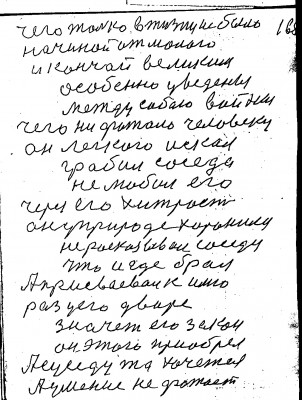 чего толко в жизни не было 168
начиной от малого
и кончай великия
особенно уведеныя
между сабою войния
чего ни фатало человеку
он легкого искал
грабил соседа
не любил его
через его хитрост
он у природе хоронили
не росказывал соседу
что и где брал
А присваевал к имо
раз у его дворе
значет его закон
он этого приобрел
А суседу та хочетея
А умение не фатает